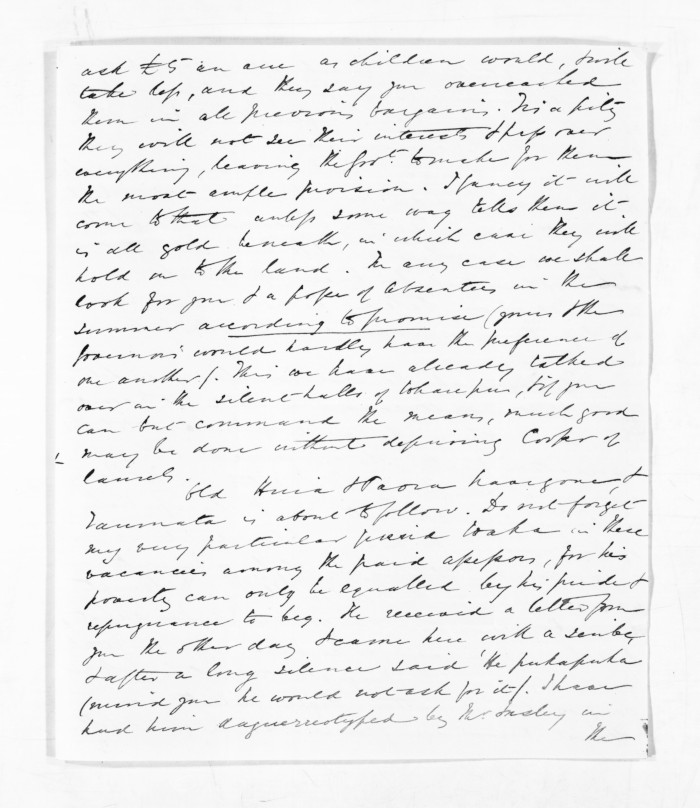 ask £5 an acre as children would, & will
take less, and they say you overreached
them in all previous bargains. Tis a pity
they will not see their interests & pass over
everything, leaving the Govt. to make for them
the most ample provision. I fancy it will
come to that unless some wag tells them it
is all gold beneath, in which case they will
hold on to the land. In any case we shall
look for you & a posse of Absentees in the
summer according to promise (yours & the
Governors would hardly have the preference of
one another). This we have already talked
over in the silent halls of & if you
can but command the means, much good
may be done without depriving Cooper of
laurels.
Old Huia & Paora have gone, &
Taumata is about to follow. Do not forget
my very particular friend Waka in these
vacancies among the paid assessors, for his
poverty can only be equalled by his pride &
repugnance to beg. He received a letter from
you the other day & came here with a scribe,
& after a long silence said 'He pukapuka
(mind you he would not ask for it). I have
had him daguerreotyped by Mr. Insley in
the